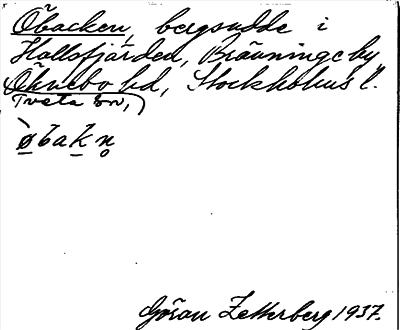 Öbacken, bergsudde i
Hallsfjärden, Bränninge by
Öknebo hd, Stockholms l.
Tveta sn,
øbakn̥
Göran Zetterberg 1937.